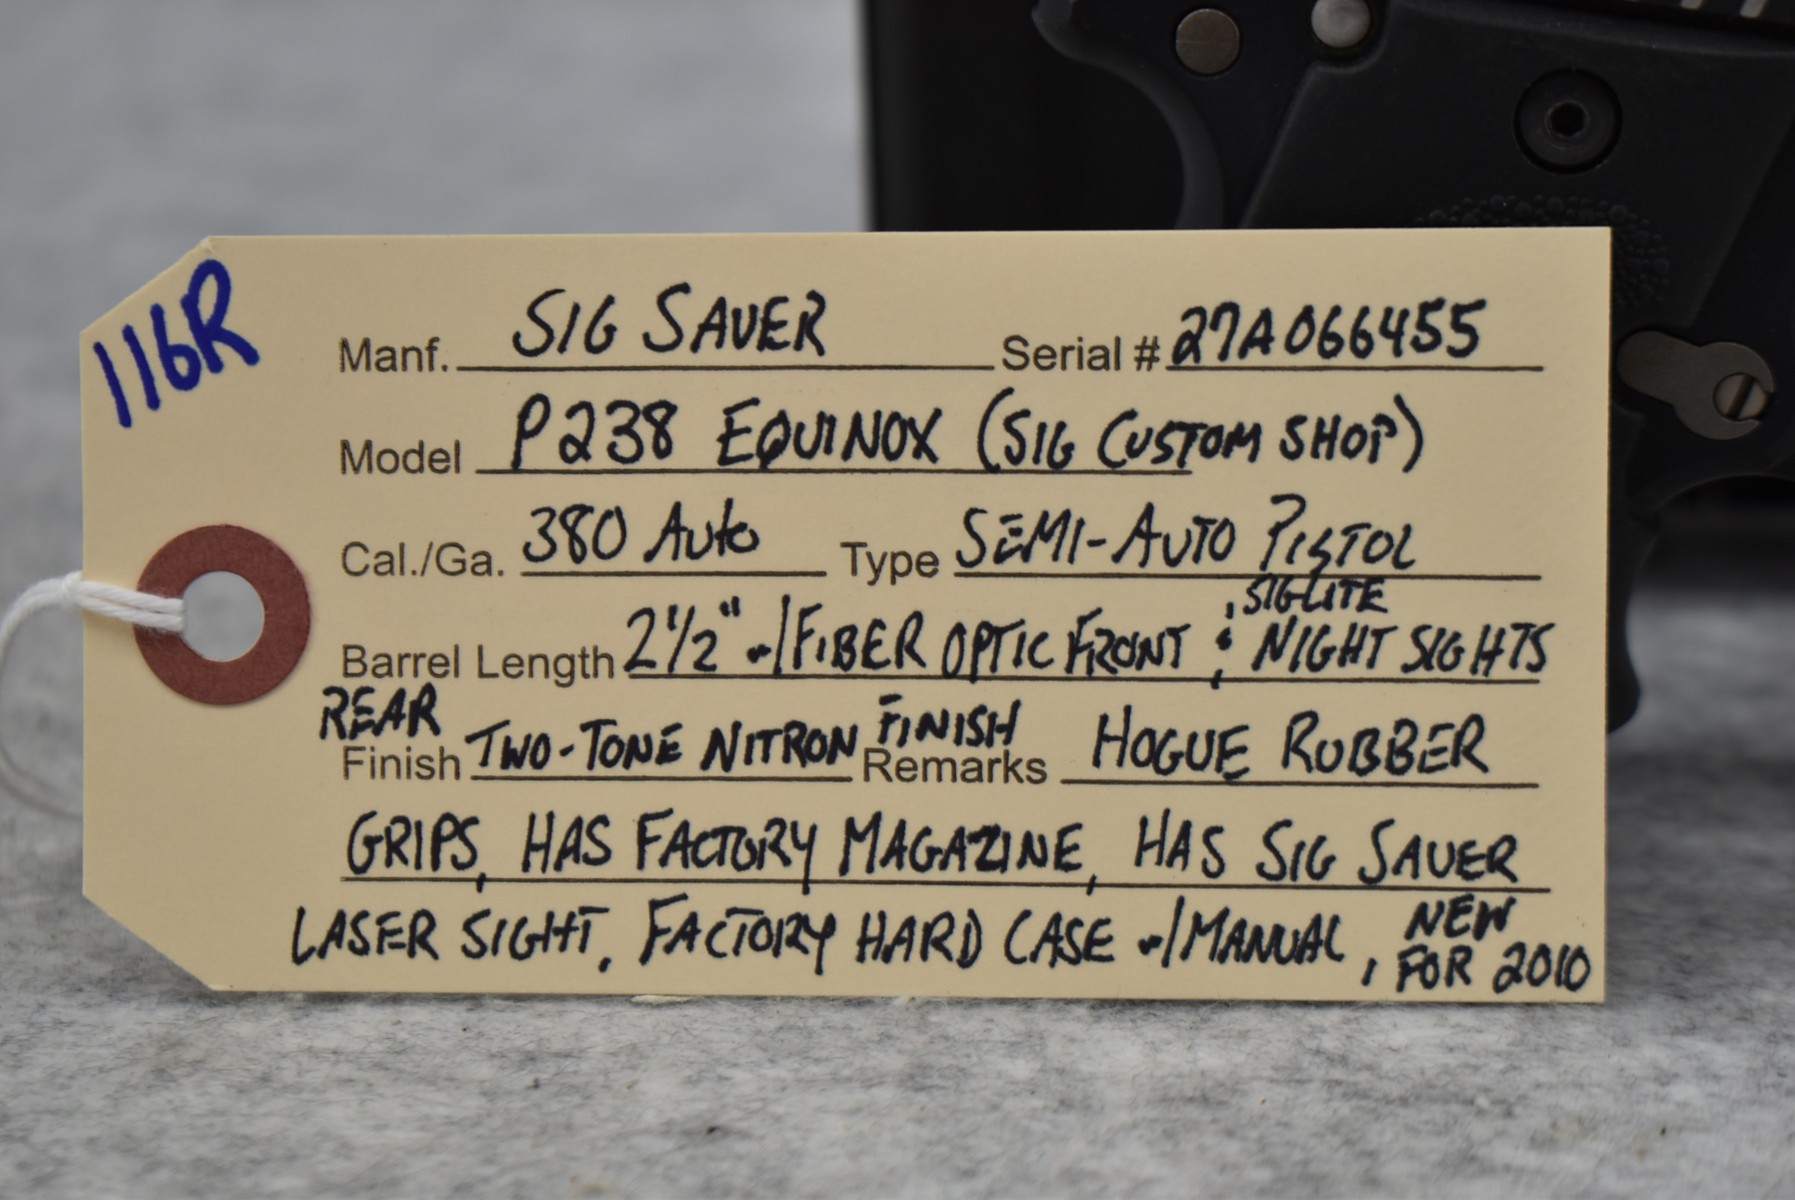 116R
Manf. SIG SAUER Serial # 27A066455
Model P238 EQUINOX (SIG CUSTOM SHOP)
Cal./Ga. 380 Auto Type SEMI-AUTO PISTOL
Barrel Length 2 1/2" w/FIBER OPTIC FRONT & SIGLITE NIGHT SIGHTS
REAR
Finish TWO-TONE NITRON FINISH Remarks HOGUE RUBBER
GRIPS, HAS FACTORY MAGAZINE, HAS SIG SAUER
LASER SIGHT, FACTORY HARD CASE w/MANUAL, NEW FOR 2010